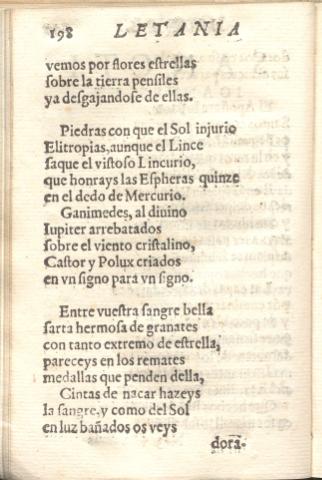 198 LETANIA
vemos por flores estrellas
sobre la tierra pensiles
ya desgajandose de ellas.
Piedras con que el Sol injurio
Elitropias, aunque el Lince
saque el vistoso Lincurio,
que honrays las Espheras quinze
en el dedo de Mercurio.
Ganimedes, al diuino
Iupiter arrebatados
sobre el viento cristalino,
Castor y Polux criados
en vn signo para vn signo.
Entre vuestra sangre bella
sarta hermosa de granates
con tanto extremo de estrella,
pareceys en los remates
medallas que penden della,
Cintas de nacar hazeys
la sangre, y como del Sol
en luz bañados os veys
dora-